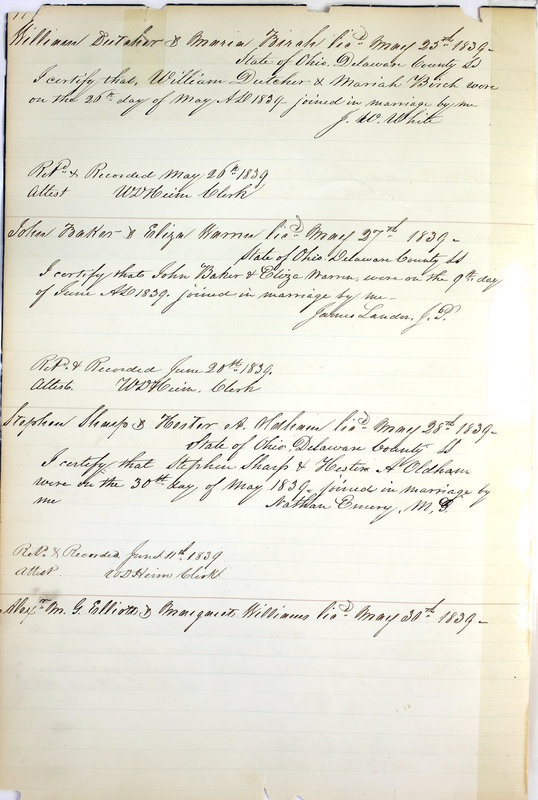 William Dutcher & Maria Birch licd May 23rd 1839-
State of Ohio, Delaware County SS
I certify that, William Dutcher & Mariah Birch were
on the 26th day of May AD 1839 joined in marriage by me
J. W. White
Retd & Recorded May 26th 1839
Attest WD Heim Clerk
John Baker & Eliza Warren licd May 27th 1839-
State of Ohio Delaware County SS
I certify that John Baker & Eliza Warren, were on the 9th day
of June AD 1839. joined in marriage by me-
James Landes, J.P.
Retd & Recorded June 20th 1839.
Attest. WD Heim, Clerk
Stephen Sharp & Hester A. Oldham licd May 28rd 1839-
State of Ohio, Delaware County SS
I certify that Stephen Sharp & Hester A Oldham
were on the 30th day of May 1839- joined in marriage by
me Nathan Emery, M,G.
Retd & Recorded June 11th 1839
Attest WD Heim Clerk
Alexr M. G. Elliott & Margaret Williams licd May 30rd 1839-